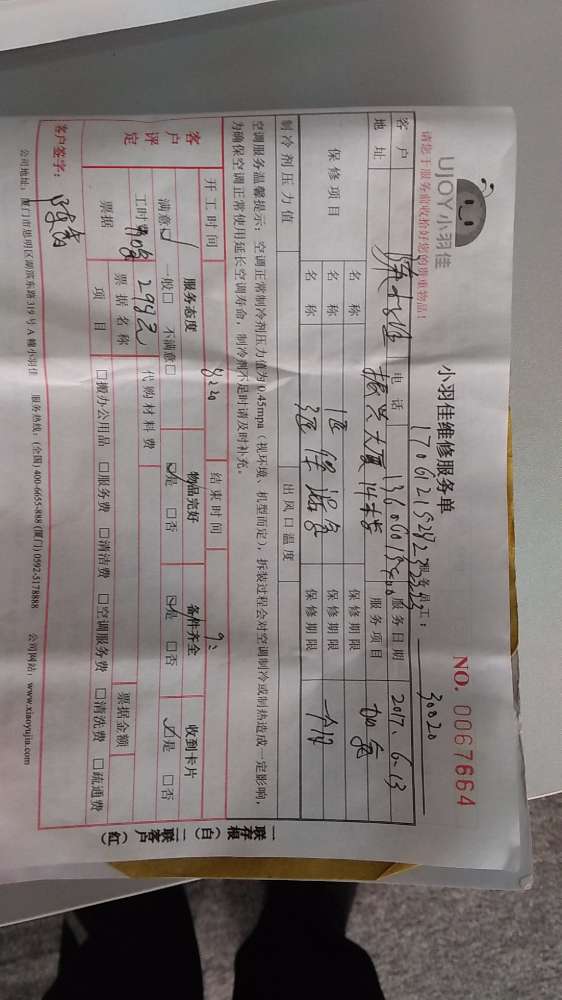 UJOY小羽佳
请您于服务前收拾好您的贵重物品!
小羽佳维修服务单
NO. 0067664
服务员工: 30020
客户 电话 服务日期 2017.6.13
地址 振兴大厦 服务项目 加氟
保修项目 名称 保修期限
名称 保修期限
制冷剂压力值 出风口温度
空调服务温馨提示:空调正常制冷剂压力值为0.45mpa(视环境、机型而定),拆装过程会对空调制冷或制热造成一定影响,
为确保空调正常使用延长空调寿命,制冷剂不足时请及时补充。
开工时间 结束时间
客户评定 服务态度 物品完好 备件齐全 收到卡片
满意☑ 一般□ 不满意□ ☑是 □否 ☑是 □否 ☑是 □否
工时费 298元 代购材料费
票据 票据名称 票据金额
项目 □搬办公用品 □服务费 □清洁费 □空调服务费 □清洗费 □疏通费
客户签字:
公司地址:厦门市思明区湖滨东路319号A幢小羽佳 服务热线:(全国) 400-6655-888 (厦门) 0592-5178888 公司网站:www.xiaoyujia.com
一联存根(白) 二联客户(红)